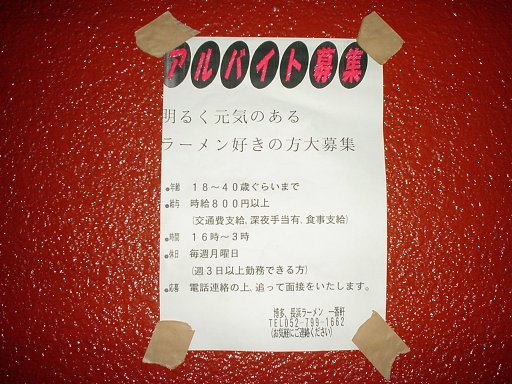 アルバイト募集
明るく元気のある
ラーメン好きの方大募集
●年齢 18～40歳ぐらいまで
●給与 時給800円以上
(交通費支給、深夜手当有、食事支給)
●時間 16時～3時
●休日 毎週月曜日
(週3日以上勤務できる方)
●応募 電話連絡の上、追って面接をいたします。
博多、長浜ラーメン 一番軒
TEL052-799-1662
(お気軽にご連絡ください)